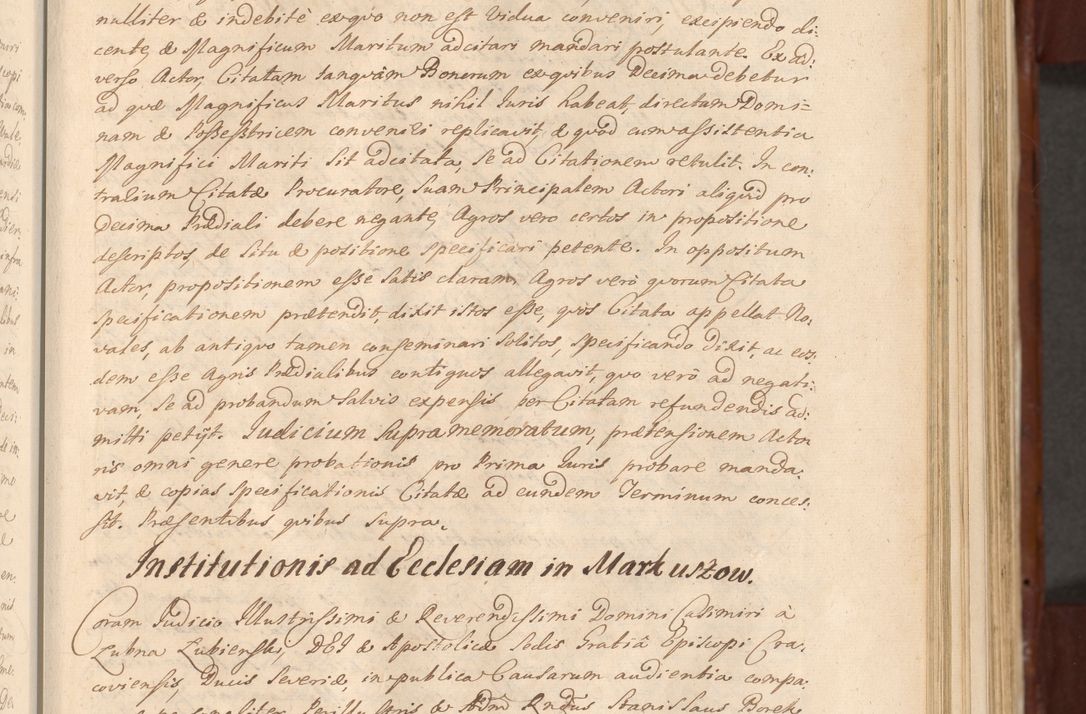 nulliter & indebitè ex quo non est Vidua conveniri, excipiendo di:
cente, & Magnificum Maritum adcitari mandari postulante. Ex ad:
verso Actor, Citatam tanquàm Bonorum ex quibus Decima debetur
ad quæ Magnificus Maritus nihil Iuris habeat, directam Domi=
nam & Possesstricem conveniri replicavit, & quòd cum assistentia
Magnifici Mariti sit adcitata, se ad Citationem retulit. In con:
trarium Citatæ Procuratore, suam Principalem Actori aliquid pro
Decima Prædiali debere negante, Agros vero certos in propositione
descriptos, de situ & positione specificari petente. In oppositum
Actor, propositionem esse satis claram, Agros verò quorum Citata
specificationem prætendit, dixit istos esse, quòs Citata appellat No:
vales, ab antiquo tamen conseminari solitos, specificando dixit, ac eos:
dem esse Agris Prædialibus contiguos allegavit, quo verò ad negati:
vam, se ad probandum salvis expensis per Citatam refundendis ad:
mitti petijt. Iudicium supramemoratum, prætensionem Acto
ris omni genere probationis pro Prima Iuris probare manda:
vit, & copias specificationis Citatæ ad eundem Terminum conces:
sit. Præsentibus quibus supra.
Institutionis ad Ecclesiam in Markuszow.
Coram Iudicio Illustrissimi & Reverendissimi Domini Casimiri à
Lubna Lubienski, DEI & Apostolicæ Sedis Gratiâ Episcopi Cra:
coviensis, Ducis Severiæ, in publica Causarum audientia compa:
Stanislaus Borek